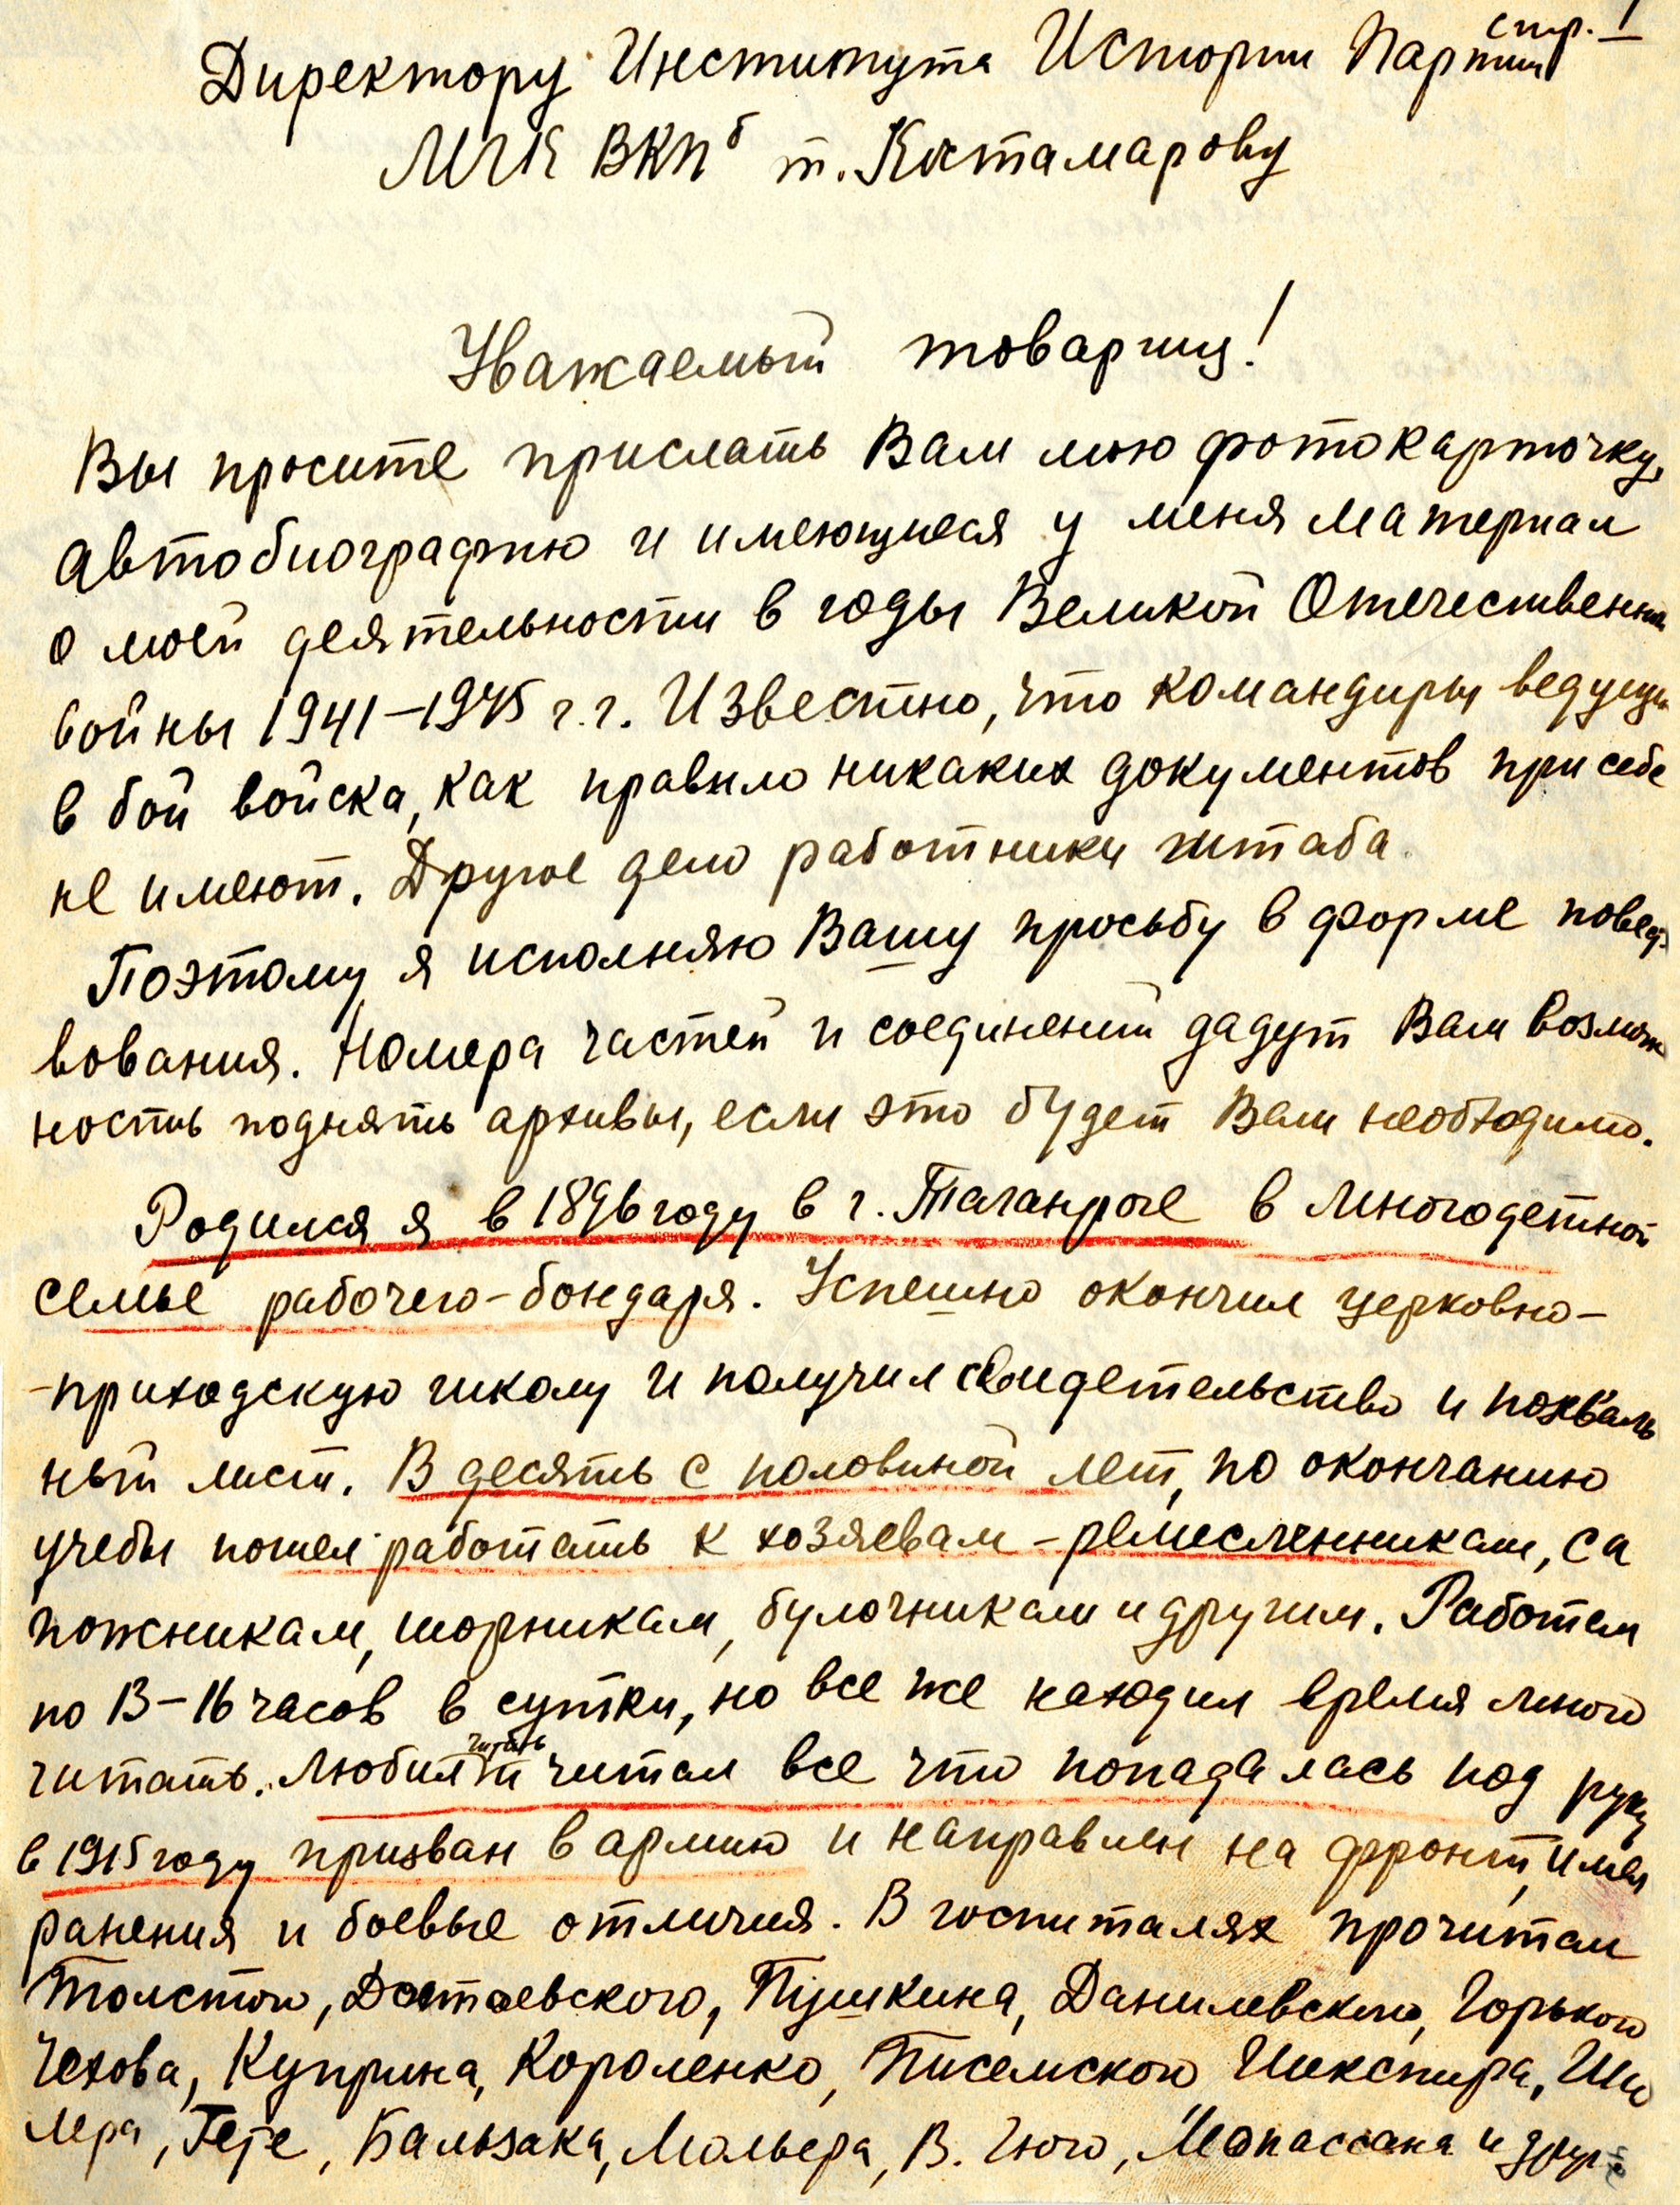 стр. 1
Директору Института Истории Партии
МГК ВКПб т. Костамарову
Уважаемый товарищ!
Вы просите прислать Вам мою фотокарточку,
автобиографию и имеющиеся у меня материал
о моей деятельности в годы Великой Отечественной
войны 1941–1945 г.г. Известно, что командиры ведущие
в бой войска, как правило никаких документов при себе
не имеют. Другое дело работники штаба.
Поэтому я исполняю Вашу просьбу в форме повест-
вования. Номера частей и соединений дадут Вам возмож
ность поднять архивы, если это будет Вам необходимо.
Родился я в 1896 году в г. Таганроге в многодетной
семье рабочего-бондаря. Успешно окончил церковно-
-приходскую школу и получил свидетельство и похваль
ный лист. В десять с половиной лет, по окончанию
учебы пошел работать к хозяевам-ремесленникам, са
пожникам, шорникам, булочникам и другим. Работал
по 13–16 часов в сутки, но все же находил время много
читать. Любил читать и читал все что попадалась под руку
в 1915 году призван в армию и направлен на фронт, имел
ранения и боевые отличия. В госпиталях прочитал
Толстого, Достоевского, Пушкина, Данилевского, Горького
Чехова, Куприна, Короленко, Писемского Шекспира, Ши
лера, Гете, Бальзака, Мольера, В. Гюго, Мопассана и друг